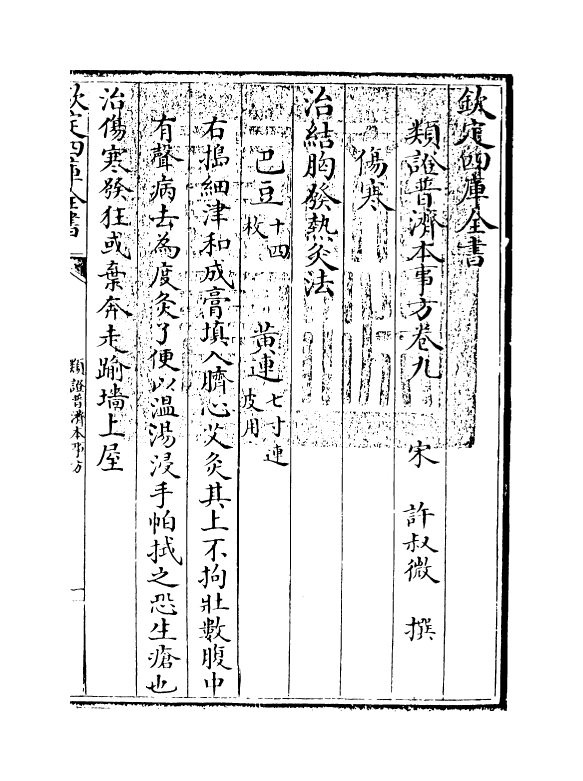 欽定四庫全書
類證普濟本事方卷九　宋　許叔微　撰
傷寒
治結胸發熱灸法
巴豆十四枚　黃連七寸連皮用
右搗細津和成膏填入臍心艾灸其上不拘壯數腹中
有聲病去為度灸了便以温湯浸手帕拭之恐生瘡也
治傷寒發狂或棄奔走踰墻上屋
欽定四庫全書
類證普濟本事方
一